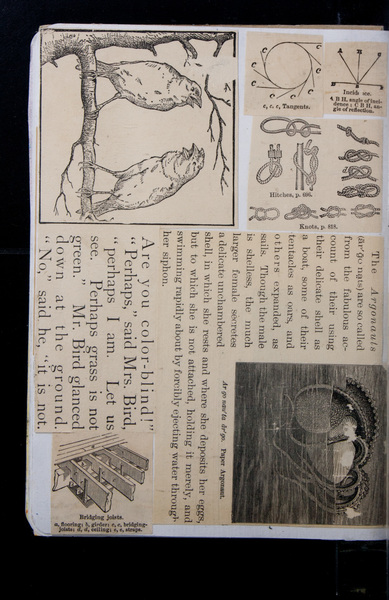 c, c, c, Tangents.
A B H
Incidence.
C B H, angle of inci-
dence; C B H, an-
gle of reflection.
Hitches, p. 686.
Knots, p. 828.
The Argonauts
(är'go-nats) are so called
from the fabulous ac-
count of their using
their delicate shell as
a boat, some of their
tentacles as oars, and
others expanded, as
sails. Though the male
is shelless, the much
larger female secretes
a delicate unchambered
shell, in which she rests and where she deposits her eggs,
but to which she is not attached, holding it merely, and
swimming rapidly about by forcibly ejecting water through
her siphon.
Ar-go-nau'ta är'go. Paper Argonaut.
Are you color-blind!"
"Perhaps," said Mrs. Bird,
"perhaps I am. Let us
see. Perhaps grass is not
green." Mr. Bird glanced
down at the ground.
"No," said he, "it is not.
Bridging joists.
a, flooring; b, girder; c, c, bridging-
joists; d, d, ceiling; e, e, straps.